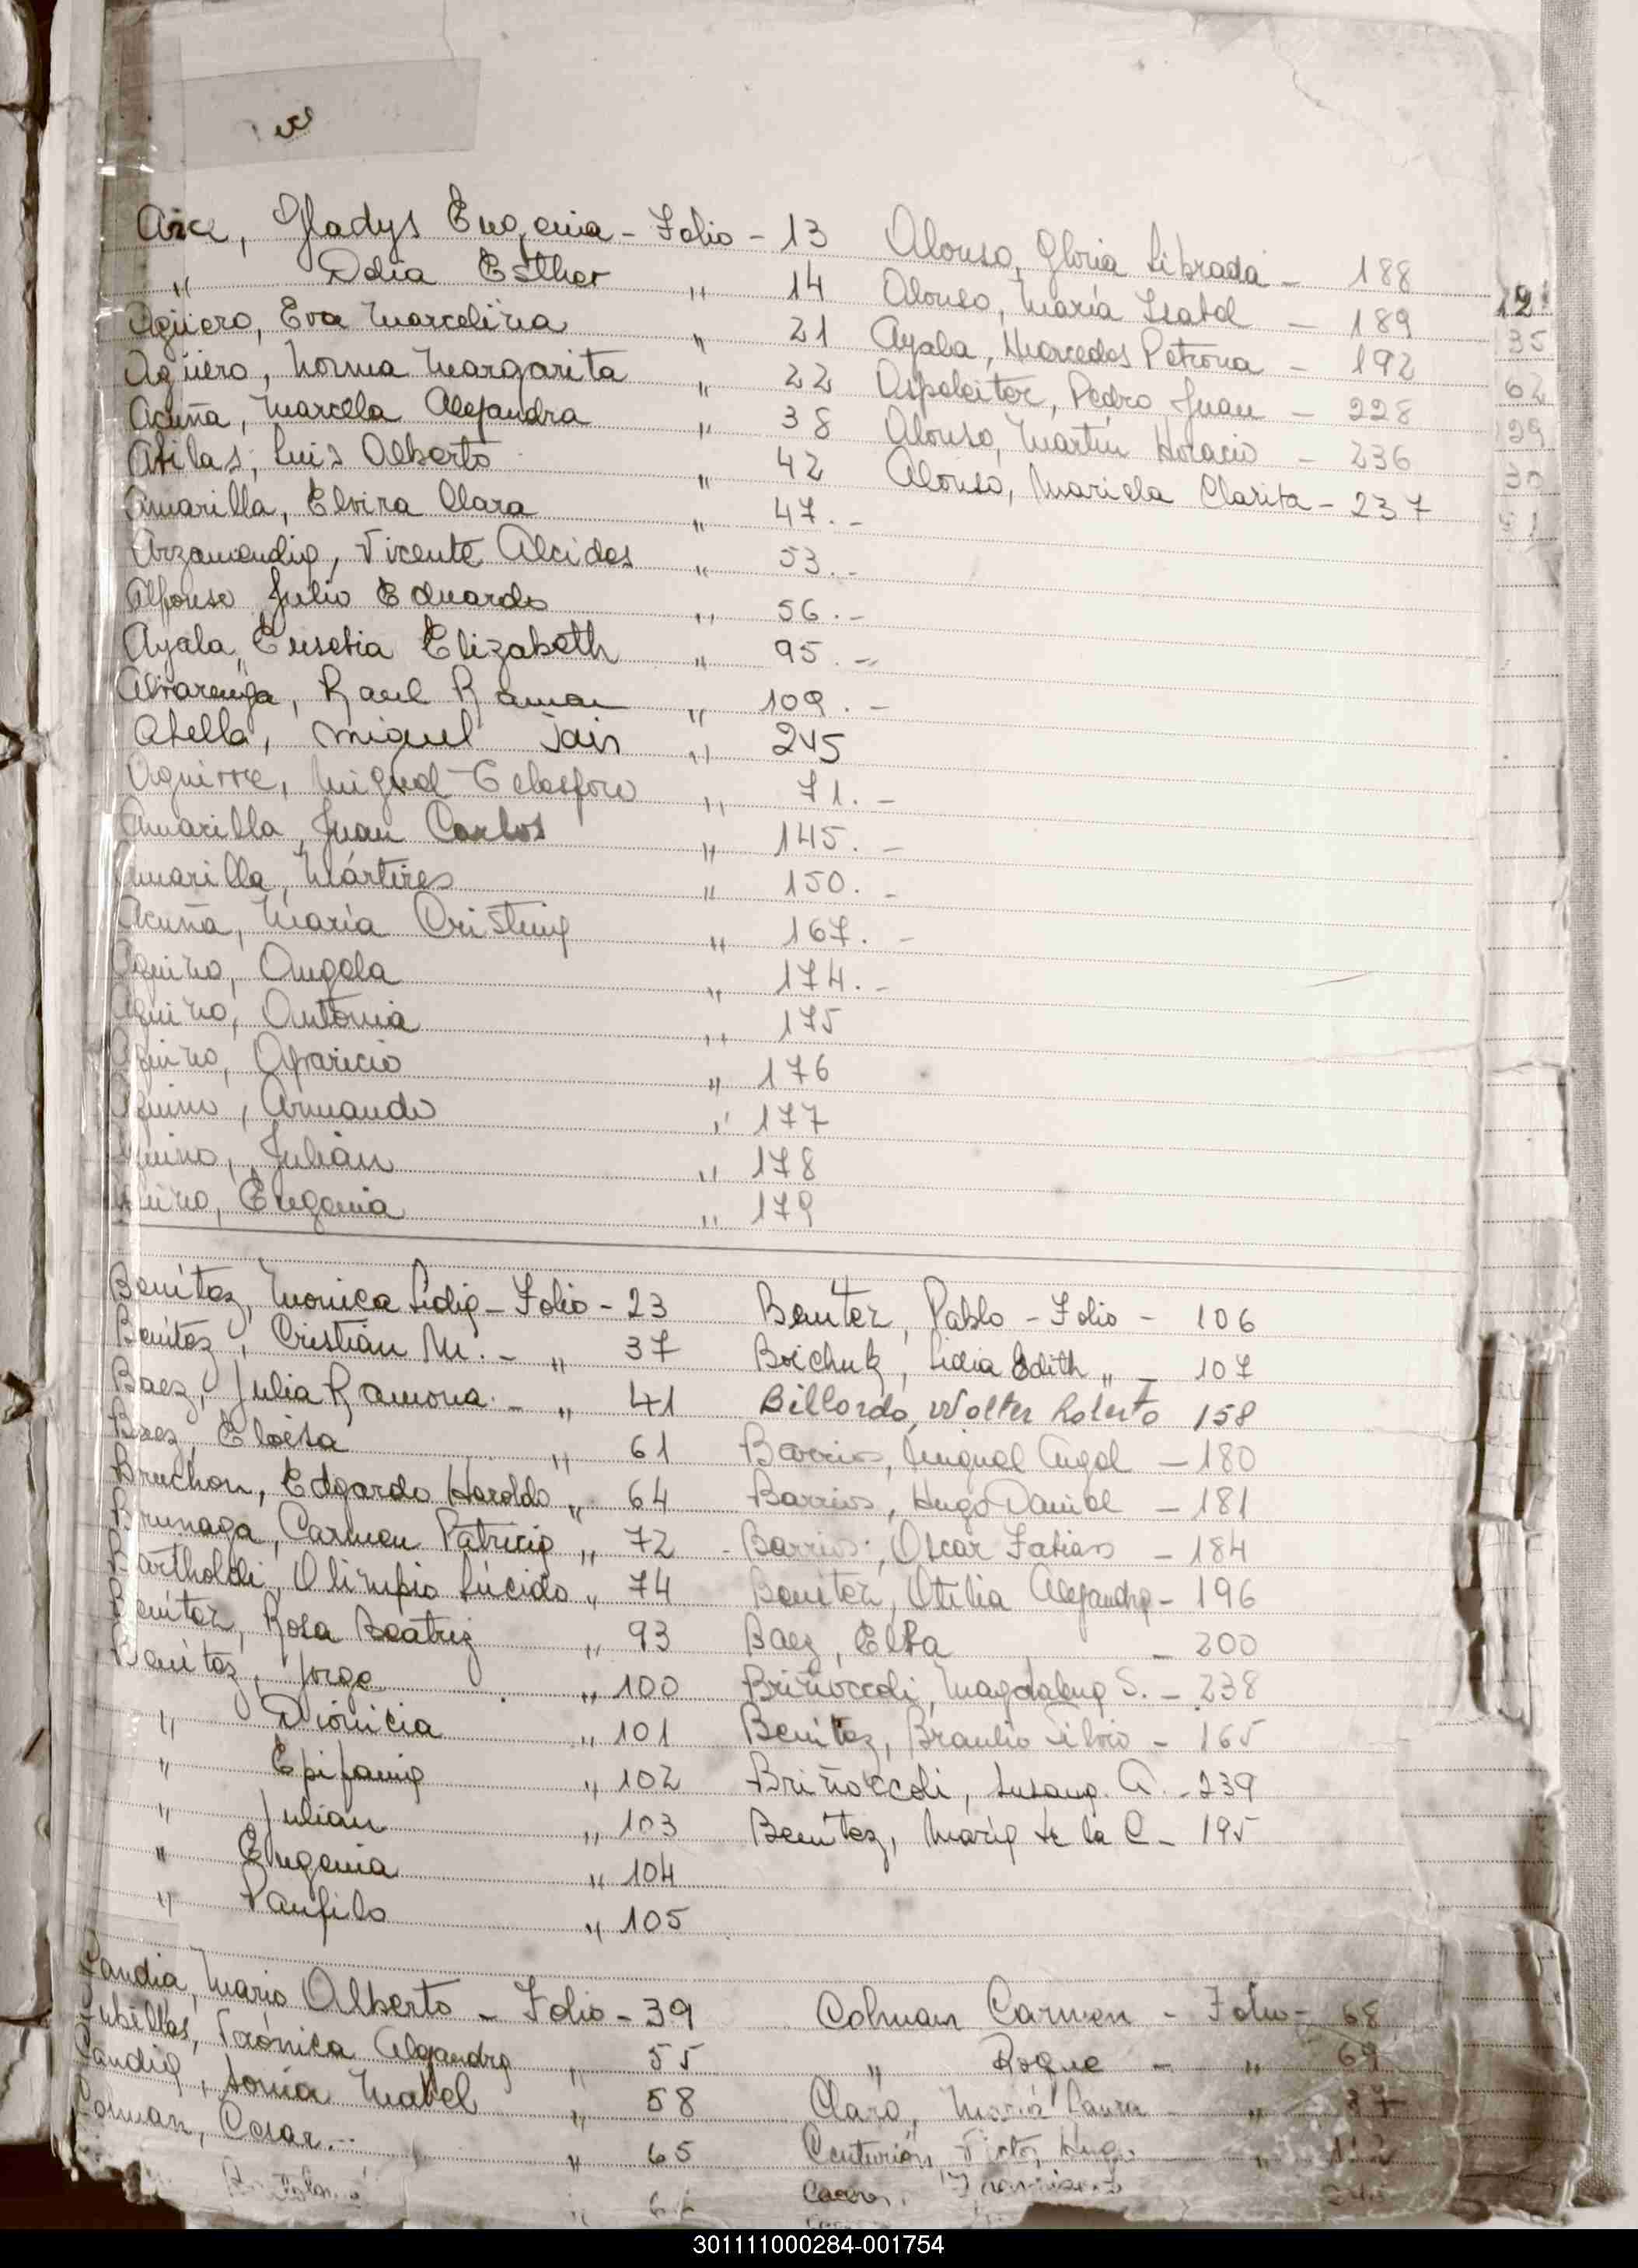 Arce, Gladys Eugenia - Folio - 13
" Delia Esther " 14
Agüero, Eva Marcelina " 21
Agüero, Norma Margarita " 22
Acuña, Marcela Alejandra " 38
Atilas, Luis Alberto " 42
Amarilla, Elvira Clara " 47.-
Arzamendia, Vicente Alcides " 53.-
Alfonso Julio Eduardo " 56.-
Ayala, Eusebia Elizabeth " 95.-
Alvarenga, Raul Ramon " 109.-
Atella, Miguel Jair " 245
Aguirre, Miguel Telesforo " 71.-
Amarilla, Juan Carlos " 145.-
Amarilla, Mártires " 150.-
Acuña, María Cristina " 167.-
Aquino, Angela " 174.-
Aquino, Antonia " 175
Aquino, Aparicio " 176
Aquino, Armando " 177
Aquino, Julián " 178
Aquino, Eugenia " 179
Alonso, Gloria Librada - 188
Alonso, María Isabel - 189
Ayala, Mercedes Petrona - 192
Aspeleiter, Pedro Juan - 228
Alonso, Martín Horacio - 236
Alonso, Mariela Clarita - 237
12
35
62
129
30
51
Benítez, Monica Lidia - Folio - 23
Benítez, Cristián M. - " 37
Baez, Julia Ramona - " 41
Baez, Eloisa " 61
Bruchon, Edgardo Haroldo " 64
Brunaga, Carmen Patricia " 72
Bartholdi, Olimpio Lúcido " 74
Benítez, Rosa Beatriz " 93
Benítez, Jorge " 100
" Dionicia " 101
" Epifania " 102
" Julian " 103
" Eugenia " 104
" Panfilo " 105
Benitez, Pablo - Folio - 106
Boichuk, Lidia Edith " - 107
Billordo, Walter Roberto 158
Barrios, Miguel Angel - 180
Barrios, Hugo Daniel - 181
Barrios, Oscar Fabian - 184
Benítez, Otilia Alejandra - 196
Baez, Elba - 200
Briñoccoli, Magdalena S. - 238
Benítez, Braulio Silvio - 165
Briñoccoli, Susana. A. - 239
Benítez, María de la C. - 195
Candia, Mario Alberto - Folio - 39
Cubillas, Verónica Alejandra " 55
Candia, Sonia Mabel " 58
Colman, Cesar.- " 65
Colman Carmen - Folio - 68
" Roque - " 69
Claro, María Laura - " 87
Centurión, Victor Hugo "
Caceres,
301111000284-001754